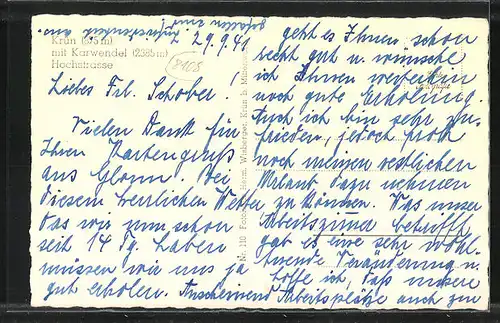 Krün (875 m)
mit Karwendel (2385 m)
Hochstrasse
29.9.41
Liebes Frl. Schober!
Vielen Dank für
Ihren Kartengruß
aus Glonn. Bei
diesem herrlichen Wetter
das wir nun schon
seit 14 Tg. haben
müssen wir uns ja
gut erholen. Anscheinend
geht es Ihnen schon
recht gut u. wünsche
ich Ihnen weiterhin
noch gute Erholung.
Auch ich bin sehr zu-
frieden, jedoch froh
noch meinen restlichen
Urlaub dazu nehmen
zu können. Was unser
Arbeitszimmer betrifft
gab es eine sehr wohl-
tuende Veränderung u.
hoffe ich, daß unsere
Arbeitsplätze auch zu
gefallen
Nr. 110 Foto Herm. Wieberger, Krün b. Mittenw.